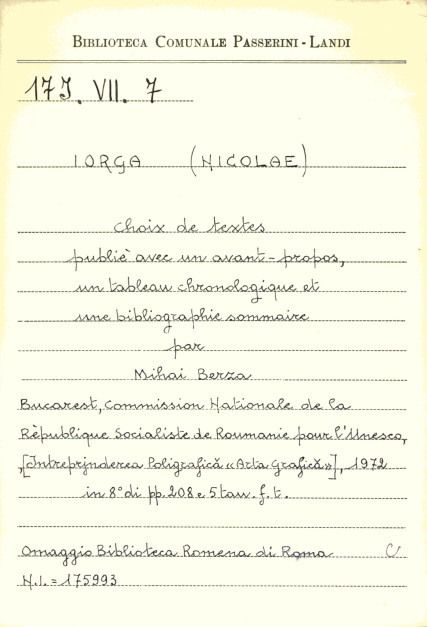 BIBLIOTECA COMUNALE PASSERINI - LANDI
17J. VII. 7
IORGA (NICOLAE)
Choix de textes
publiè avec un avant-propos,
un tableau chronologique et
une bibliographie sommaire
par
Mihai Berza
Bucarest, Commission Nationale de la
Rèpublique Socialiste de Roumanie pour l'Unesco,
,[Intreprjnderea Poligrafică «Arta Grafică»], 1972
in 8° di pp. 208 e 5 tav. f. t.
Omaggio Biblioteca Romena di Roma C
N.I. = 175993